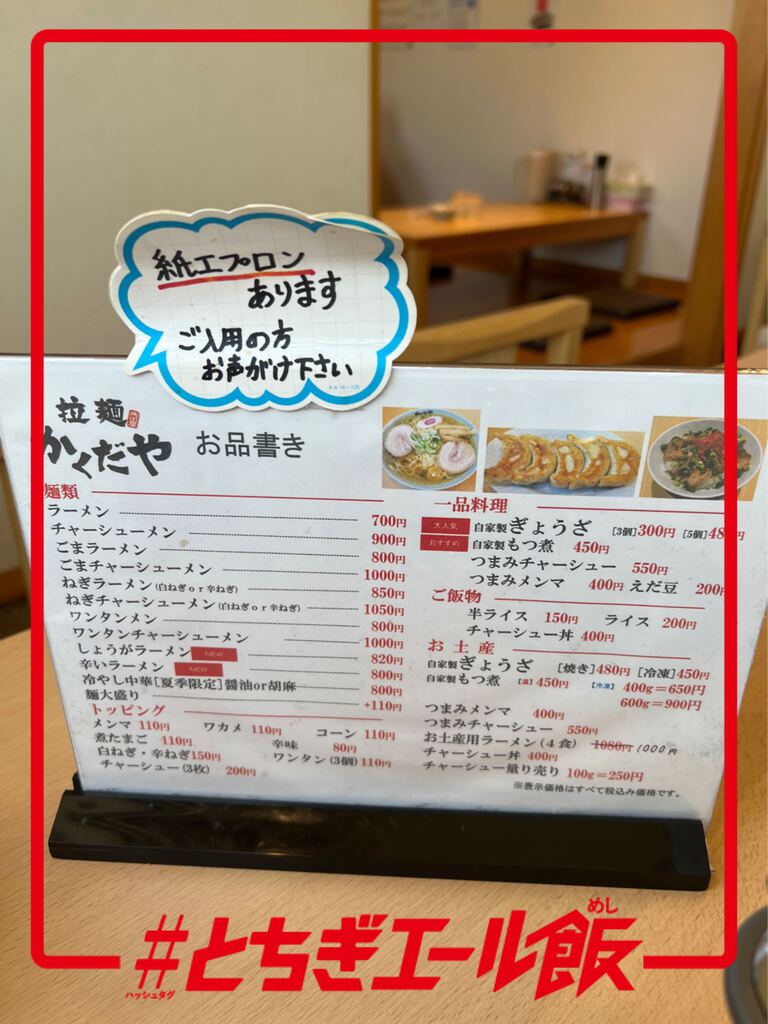 紙エプロン
あります
ご入用の方
お声がけ下さい
拉麺
かくだや
お品書き
麺類
ラーメン 700円
チャーシューメン 900円
ごまラーメン 800円
ごまチャーシューメン 1000円
ねぎラーメン(白ねぎor辛ねぎ) 850円
ねぎチャーシューメン(白ねぎor辛ねぎ) 1050円
ワンタンメン 800円
ワンタンチャーシューメン 1000円
しょうがラーメン NEW 820円
辛いラーメン NEW 800円
冷やし中華[夏季限定]醤油or胡麻 800円
麺大盛り +110円
トッピング
メンマ 110円 ワカメ 110円 コーン 110円
煮たまご 110円 辛味 80円
白ねぎ・辛ねぎ150円 ワンタン(3個)110円
チャーシュー(3枚) 200円
一品料理
大人気 自家製ぎょうざ [3個]300円 [5個]480円
おすすめ 自家製もつ煮 450円
つまみチャーシュー 550円
つまみメンマ 400円 えだ豆 200円
ご飯物
半ライス 150円 ライス 200円
チャーシュー丼 400円
お土産
自家製ぎょうざ [焼き]480円 [冷凍]450円
自家製もつ煮 【温】450円 【冷凍】 400g=650円
600g=900円
つまみメンマ 400円
つまみチャーシュー 550円
お土産用ラーメン(4食) 1080円 1000円
チャーシュー丼 400円
チャーシュー量り売り 100g=250円
※表示価格はすべて税込み価格です。
#とちぎエール飯
ハッシュタグ
めし